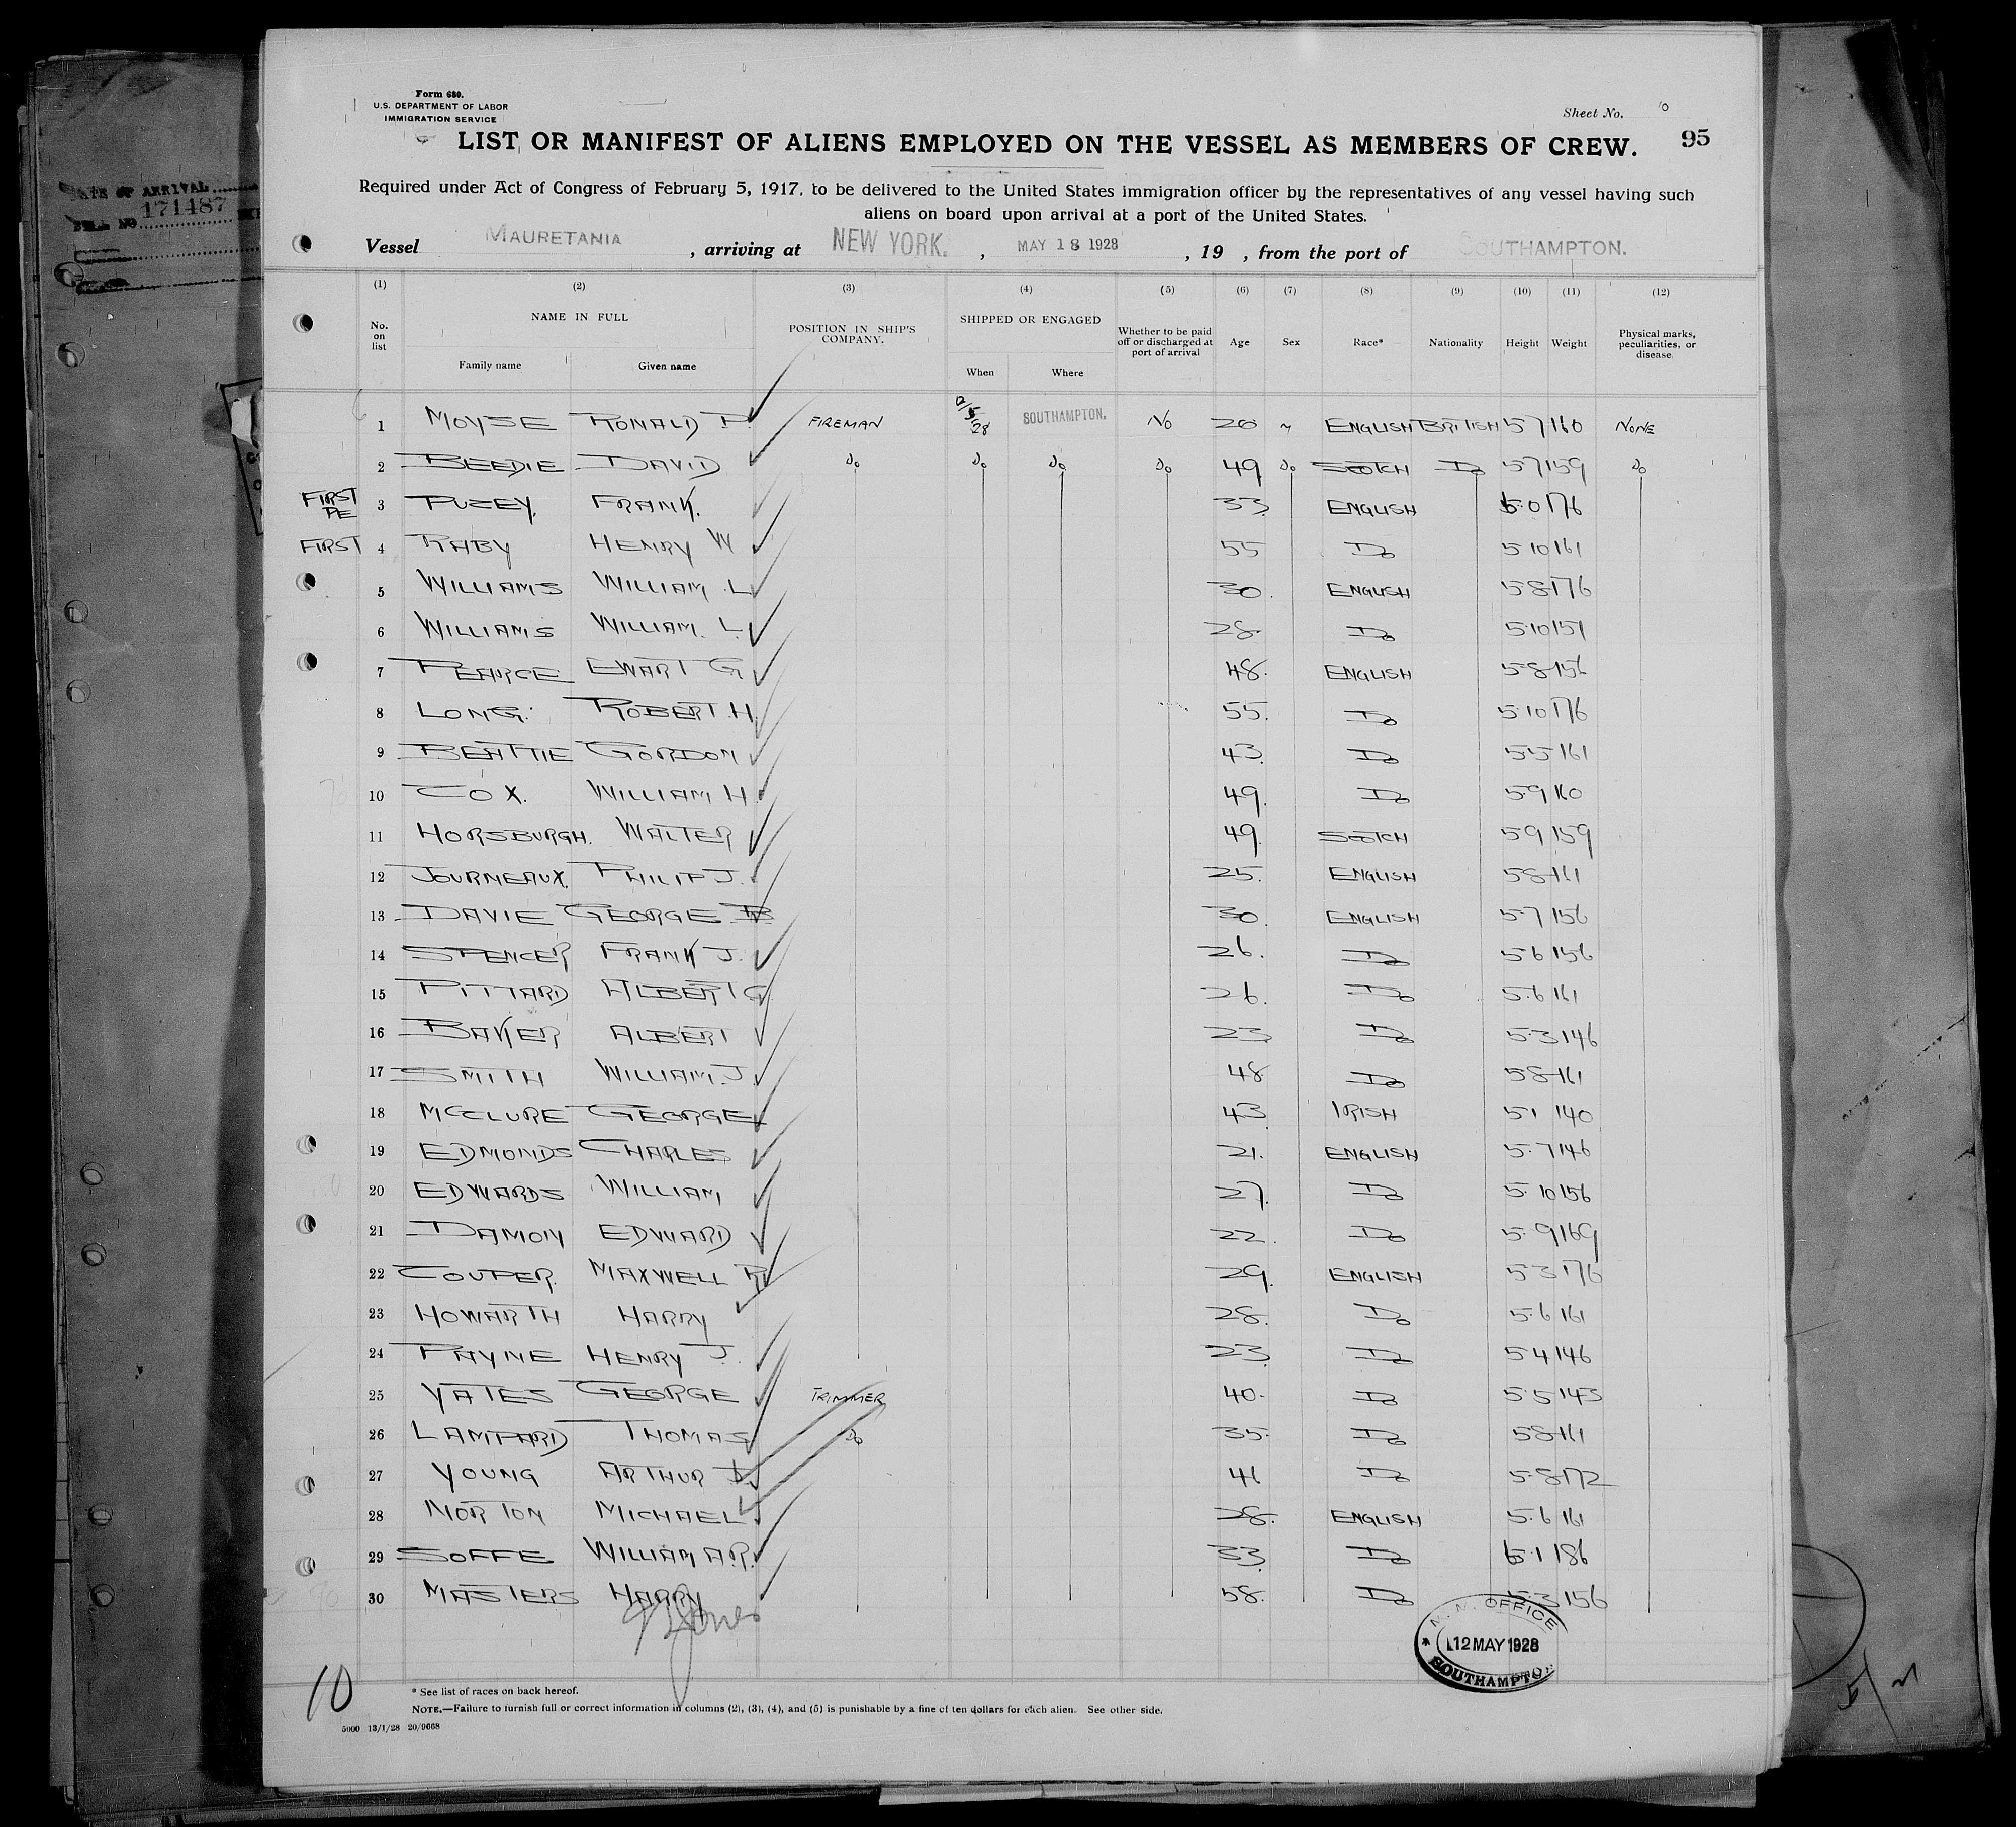 Form 680.
U.S. DEPARTMENT OF LABOR
IMMIGRATION SERVICE
Sheet No.
95
LIST OR MANIFEST OF ALIENS EMPLOYED ON THE VESSEL AS MEMBERS OF CREW.
Required under Act of Congress of February 5, 1917, to be delivered to the United States immigration officer by the representatives of any vessel having such
aliens on board upon arrival at a port of the United States.
DATE OF ARRIVAL
171487
Vessel MAURETANIA , arriving at NEW YORK. , MAY 18 1928 , 19 , from the port of SOUTHAMPTON.
(1) (2) (3) (4) (5) (6) (7) (8) (9) (10) (11) (12)
No. on list NAME IN FULL POSITION IN SHIP'S COMPANY. SHIPPED OR ENGAGED Whether to be paid off or discharged at port of arrival Age Sex Race* Nationality Height Weight Physical marks, peculiarities, or disease.
Family name Given name When Where
1 MOYSE RONALD P. FIREMAN SOUTHAMPTON. NO 20 M ENGLISH BRITISH 5 7 160 NONE
2 BEEDIE DAVID Do Do Do Do 49 Do SCOTCH Do 5 7 159 Do
FIRST 3 PUZEY. FRANK. 33 ENGLISH 6.0 176
FIRST 4 RABY HENRY W 55 Do 5 10 161
5 WILLIAMS WILLIAM .L 30. ENGLISH 5 8 176
6 WILLIAMS WILLIAM. L. 28 Do 5.10 151
7 PEARCE EWART G 48. ENGLISH 5.8 156
8 LONG. ROBERT.H 55. Do 5.10 176
9 BEATTIE GORDON 43. Do 5.5 161
10 COX. WILLIAM H. 49. Do 5.9 160
11 HORSBURGH. WALTER 49. SCOTCH 5.9 159
12 JOURNEAUX. PHILIP J. 25. ENGLISH 5.8 161
13 DAVIE GEORGE 30. ENGLISH 5.7 156
14 SPENCER FRANK J. 26. Do 5.6 156
15 PITTARD ALBERT G 26. Do 5.6 161
16 BAKER ALBERT 23 Do 5.3 146
17 SMITH WILLIAM.J. 48. Do 5.8 161
18 MCCLURE GEORGE 43 IRISH 5 1 140
19 EDMONDS CHARLES 21. ENGLISH 5.7 146
20 EDWARDS WILLIAM 27. Do 5.10 156
21 DAMON EDWARD 22. Do 5.9 169
22 COUPER. MAXWELL R 29. ENGLISH 5 3 176
23 HOWARTH HARRY 28. Do 5.6 161
24 PAYNE HENRY J. 23. Do 5 4 146
25 YATES GEORGE TRIMMER 40. Do 5.5 143
26 LAMPARD THOMAS Do 35. Do 5.8 161
27 YOUNG ARTHUR 41 Do 5.8 172
28 NORTON MICHAEL 28. ENGLISH 5.6 161
29 SOFFE WILLIAM A.R. 33. Do 6.1 186
30 MASTERS HARRY 58. Do 5.3 156
OFFICE
12 MAY 1928
SOUTHAMPTON
10
* See list of races on back hereof.
NOTE.—Failure to furnish full or correct information in columns (2), (3), (4), and (5) is punishable by a fine of ten dollars for each alien. See other side.
5000 13/1/28 20/9668